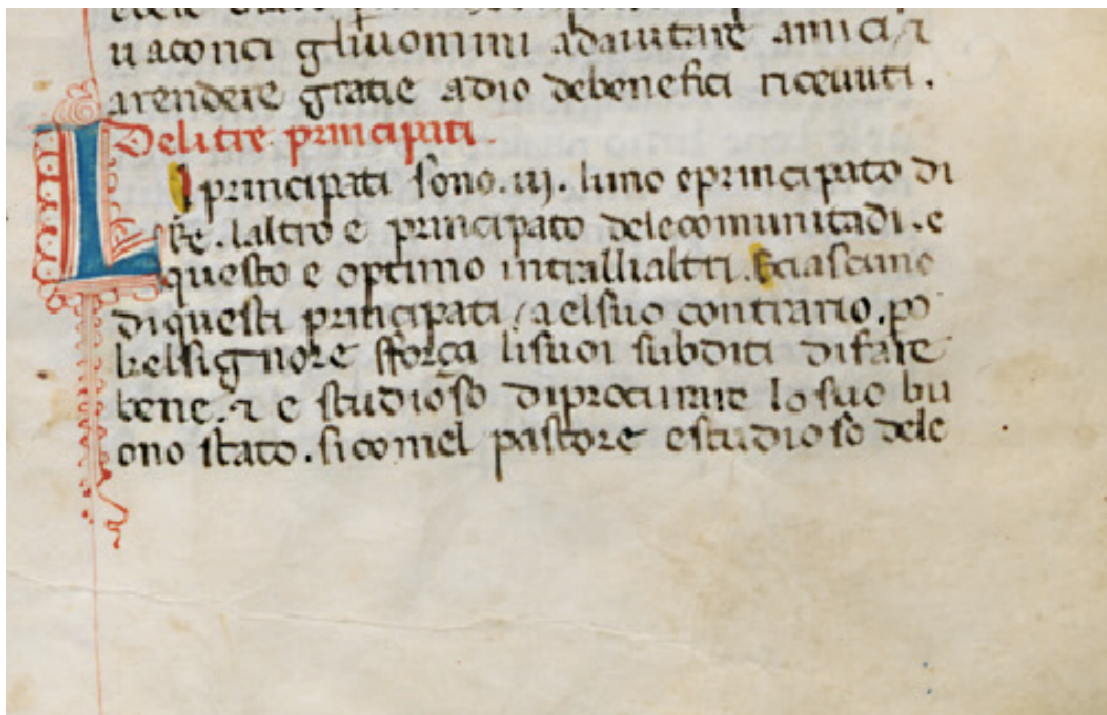 uaconci gliuomini adaiutare amici ⁊
arendere gratie adio debenefici riceuuti.
Delitre principati
LI principati sono .iij. luno eprincipato di
Re. laltro e principato delecomunitadi. e
questo e optimo intrallialtri. Eciascuno
diquesti principati / a elsuo contrario. po
kelsignore sforça lisuoi subditi difare
bene. ⁊ e studioso diprocurare losuo bu
ono stato. sicomel pastore estudioso dele